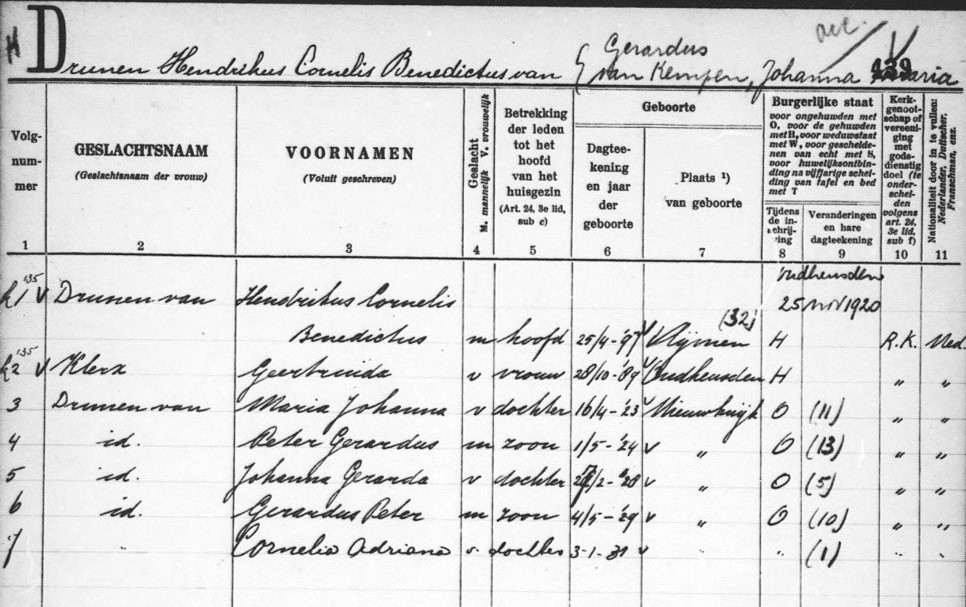 H
Gerardus
Drunen Hendrikus Cornelis Benedictus van
van Kempen, Johanna Maria
139
Volg-
num-
mer
GESLACHTSNAAM
(Geslachtsnaam der vrouw)
VOORNAMEN
(Voluit geschreven)
Geslacht
M. mannelijk V. vrouwelijk
Betrekking
der leden
tot het
hoofd
van het
huisgezin
(Art. 24, 3e lid,
sub c)
Geboorte
Dagtee-
kening
en jaar
der
geboorte
Plaats 1)
van geboorte
Burgerlijke staat
voor ongehuwden met
O, voor de gehuwden
met H, voor weduwstaat
met W, voor gescheide-
nen van echt met S,
voor huwelijksontbin-
ding na vijfjarige schei-
ding van tafel en bed
met T
Tijdens
de in-
schrij-
ving
Veranderingen
en hare
dagteekening
Kerk-
genoot-
schap of
vereeni-
ging
met
gods-
dienstig
doel (te
onder-
schei-
den
volgens
art. 24,
3e lid,
sub f)
Nationaliteit door in te vullen:
Nederlander, Duitscher,
Franschman, enz.
1 2 3 4 5 6 7 8 9 10 11
Oudheusden
135 1 V Drunen van Hendrikus Cornelis 25 nov 1920
Benedictus m hoofd 25/4-'97 V (32) Vlijmen H R.K. Ned.
135 2 V Klerx Geertruida v vrouw 28/10-'89 V Oudheusden H " "
3 Drunen van Maria Johanna v dochter 16/4-'23 V Nieuwkuijk O (11) " "
4 id. Peter Gerardus m zoon 1/5-'24 v " O (13) " "
5 id. Johanna Gerarda v dochter /2-'28 v " O (5) " "
6 id. Gerardus Peter m zoon 4/5-'29 v " O (10) " "
7 " Cornelia Adriana v. dochter 3-1-31 v " " (1) " "